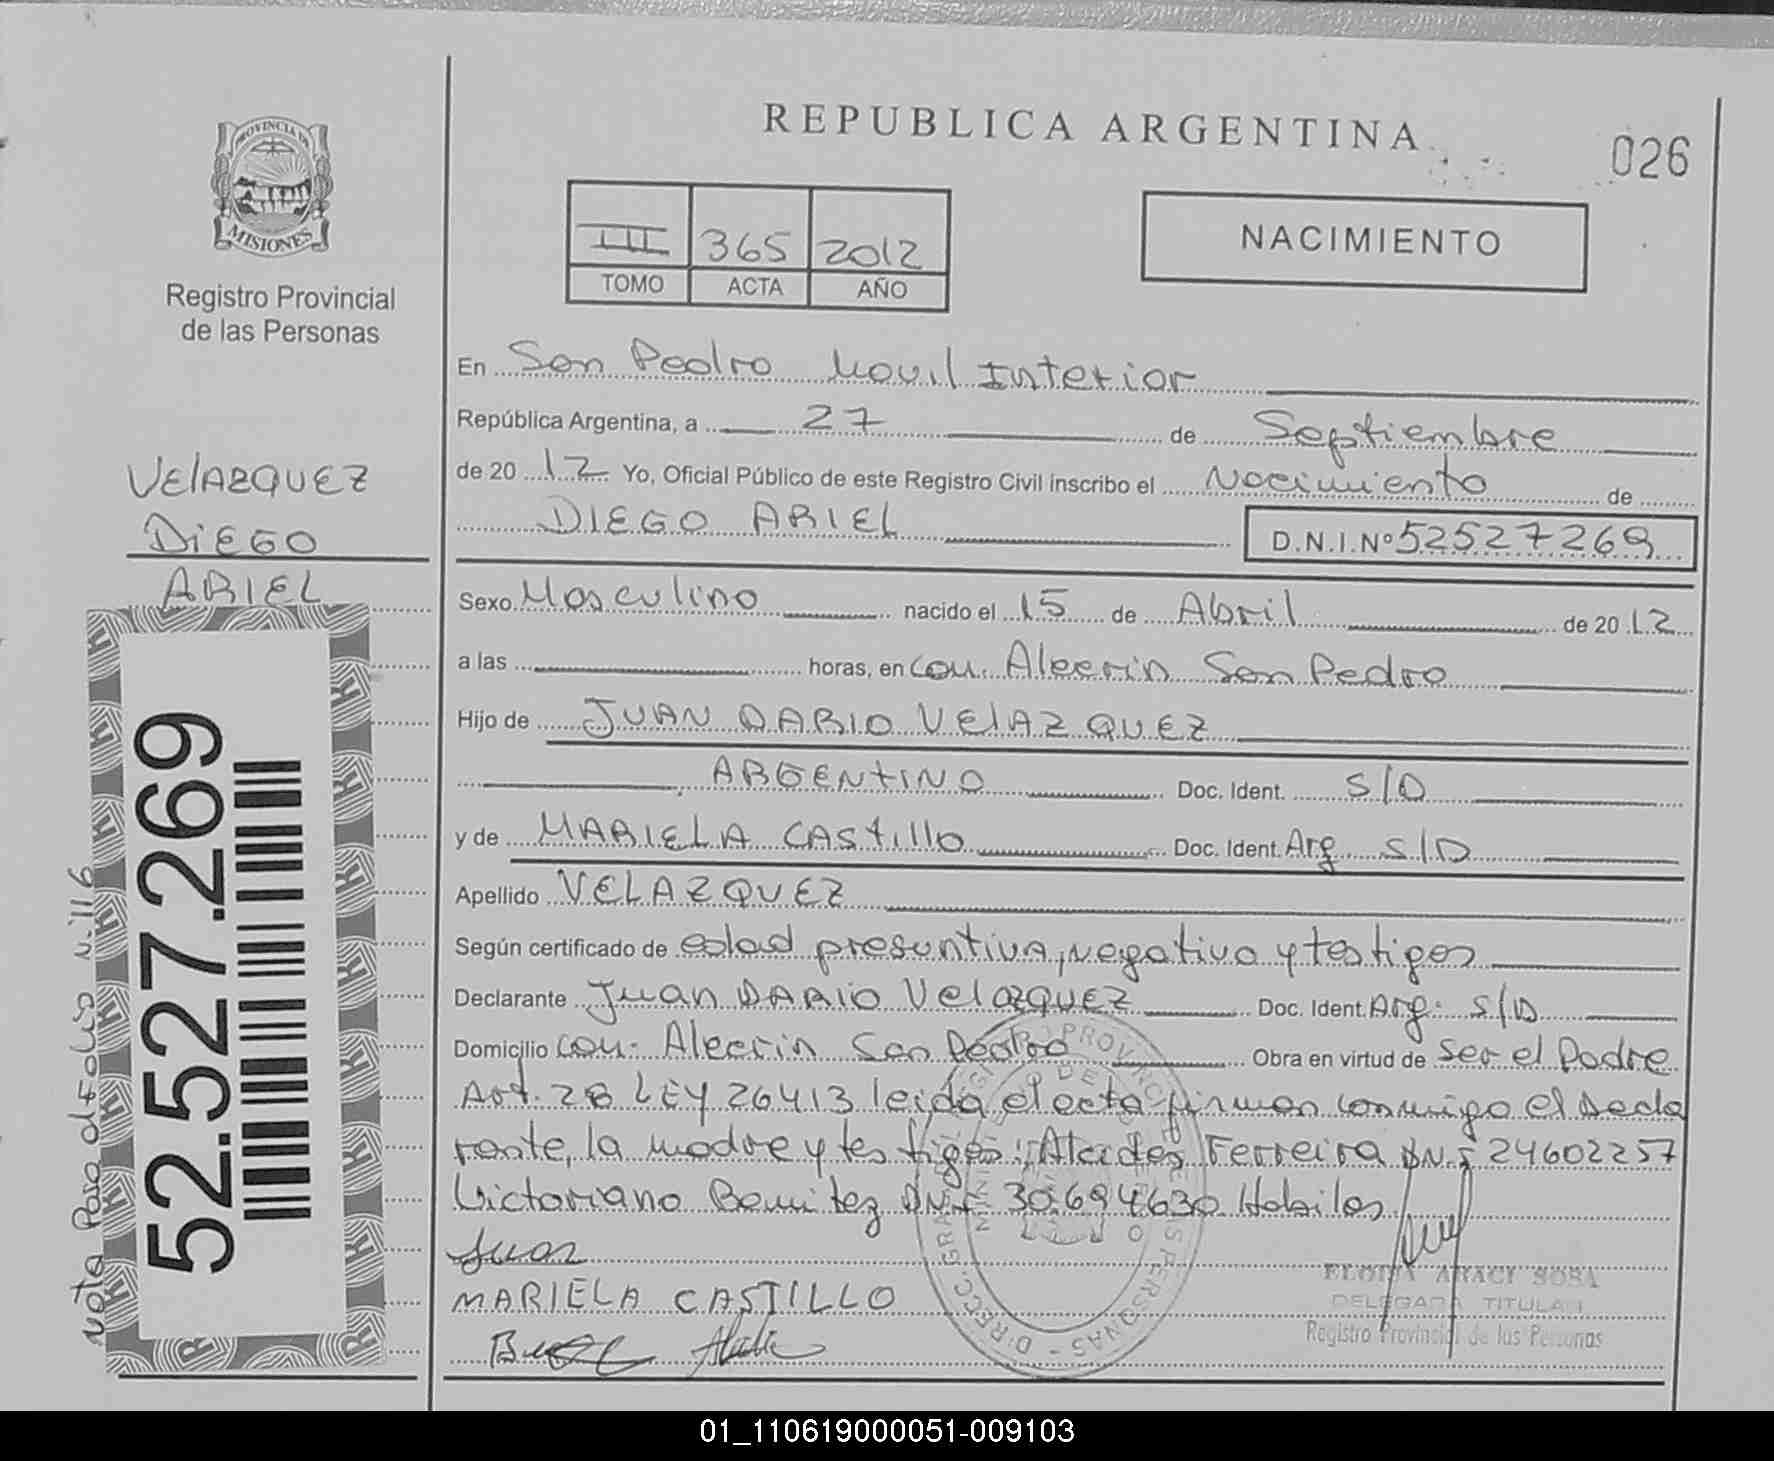 REPUBLICA ARGENTINA
026
PROVINCIA DE
MISIONES
Registro Provincial
de las Personas
III 365 2012
TOMO ACTA AÑO
NACIMIENTO
En San Pedro Movil Interior
República Argentina, a 27 de Septiembre
de 20 12 Yo, Oficial Público de este Registro Civil inscribo el Nacimiento de
DIEGO ARIEL D.N.I.Nº 52527269
VELAZQUEZ
DIEGO
ARIEL
Sexo Masculino nacido el 15 de Abril de 20 12
a las horas, en Com. Alecrin San Pedro
Hijo de JUAN DARIO VELAZQUEZ
ARGENTINO Doc. Ident. S/D
y de MARIELA CASTILLO Doc. Ident. Arg S/D
Apellido VELAZQUEZ
Según certificado de edad presuntiva, negativa y testigos
Declarante Juan DARIO VelazQUEZ Doc. Ident. Arg. S/D
Domicilio Com. Alecrin San Pedro Obra en virtud de ser el Padre
Art. 28 LEY 26413 leida el acta firman conmigo el decla
rante, la madre y testigos: Alcides Ferreira DNI 24602257
Victoriano Benitez DNI 30.694630 Habiles
Juan
MARIELA CASTILLO
ELODIA ARACI SOSA
DELEGADA TITULAR
Registro Provincial de las Personas
52.527.269
Nota Paso al Folio N. 116
01_110619000051-009103